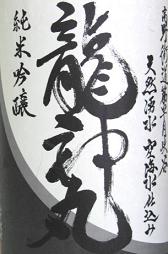 天然湧水空海水仕込み
龍神丸
純米吟醸